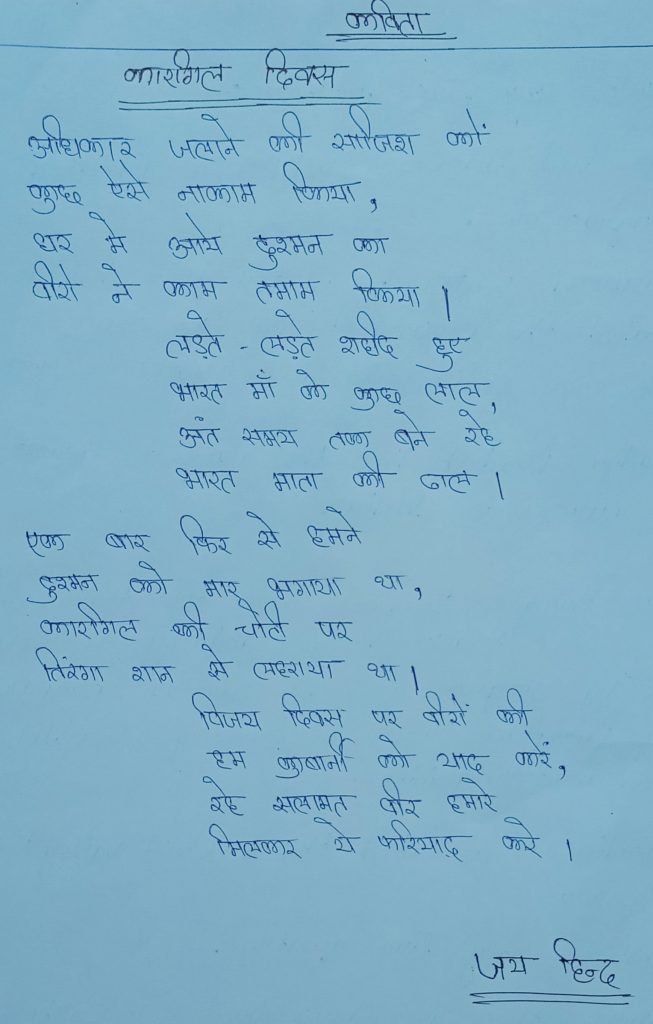 कविता
कारगिल दिवस
अधिकार जलाने की साजिश कों
कुछ ऐसे नाकाम किया,
घर मे आये दुश्मन का
वीरो ने काम तमाम किया।
लड़ते - लड़ते शहीद हुए
भारत माँ के कुछ लाल,
अंत समय तक बने रहे
भारत माता की ढाल।
एक बार फिर से हमने
दुश्मन को मार भगाया था,
कारगिल की चोटी पर
तिरंगा शान से लहराया था।
विजय दिवस पर वीरों की
हम कुबार्नी को याद करें,
रहे सलामत वीर हमारे
मिलकर ये फरियाद करे।
जय हिन्द